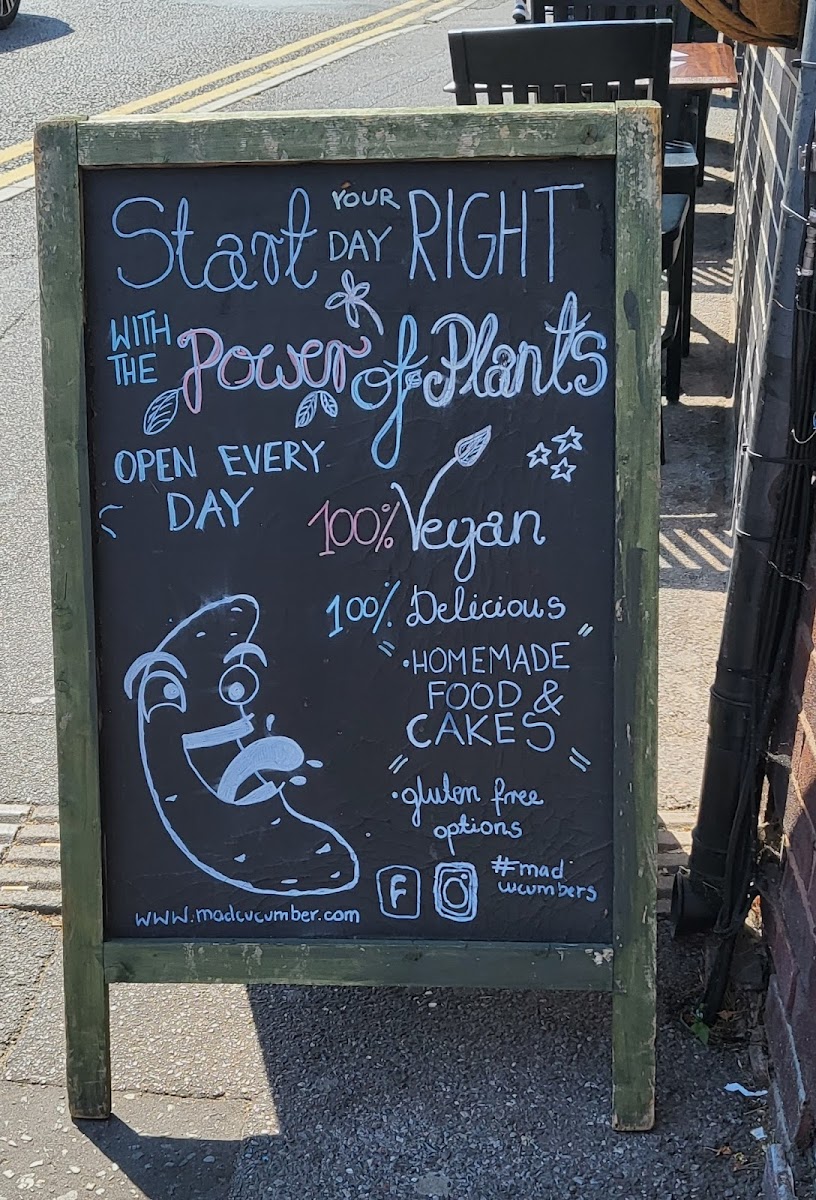 Start YOUR DAY RIGHT
WITH THE Power of Plants
OPEN EVERY
DAY
100% Vegan
100% Delicious
• HOMEMADE
FOOD &
CAKES
• gluten free
options
#mad
cucumbers
www.madcucumber.com
F